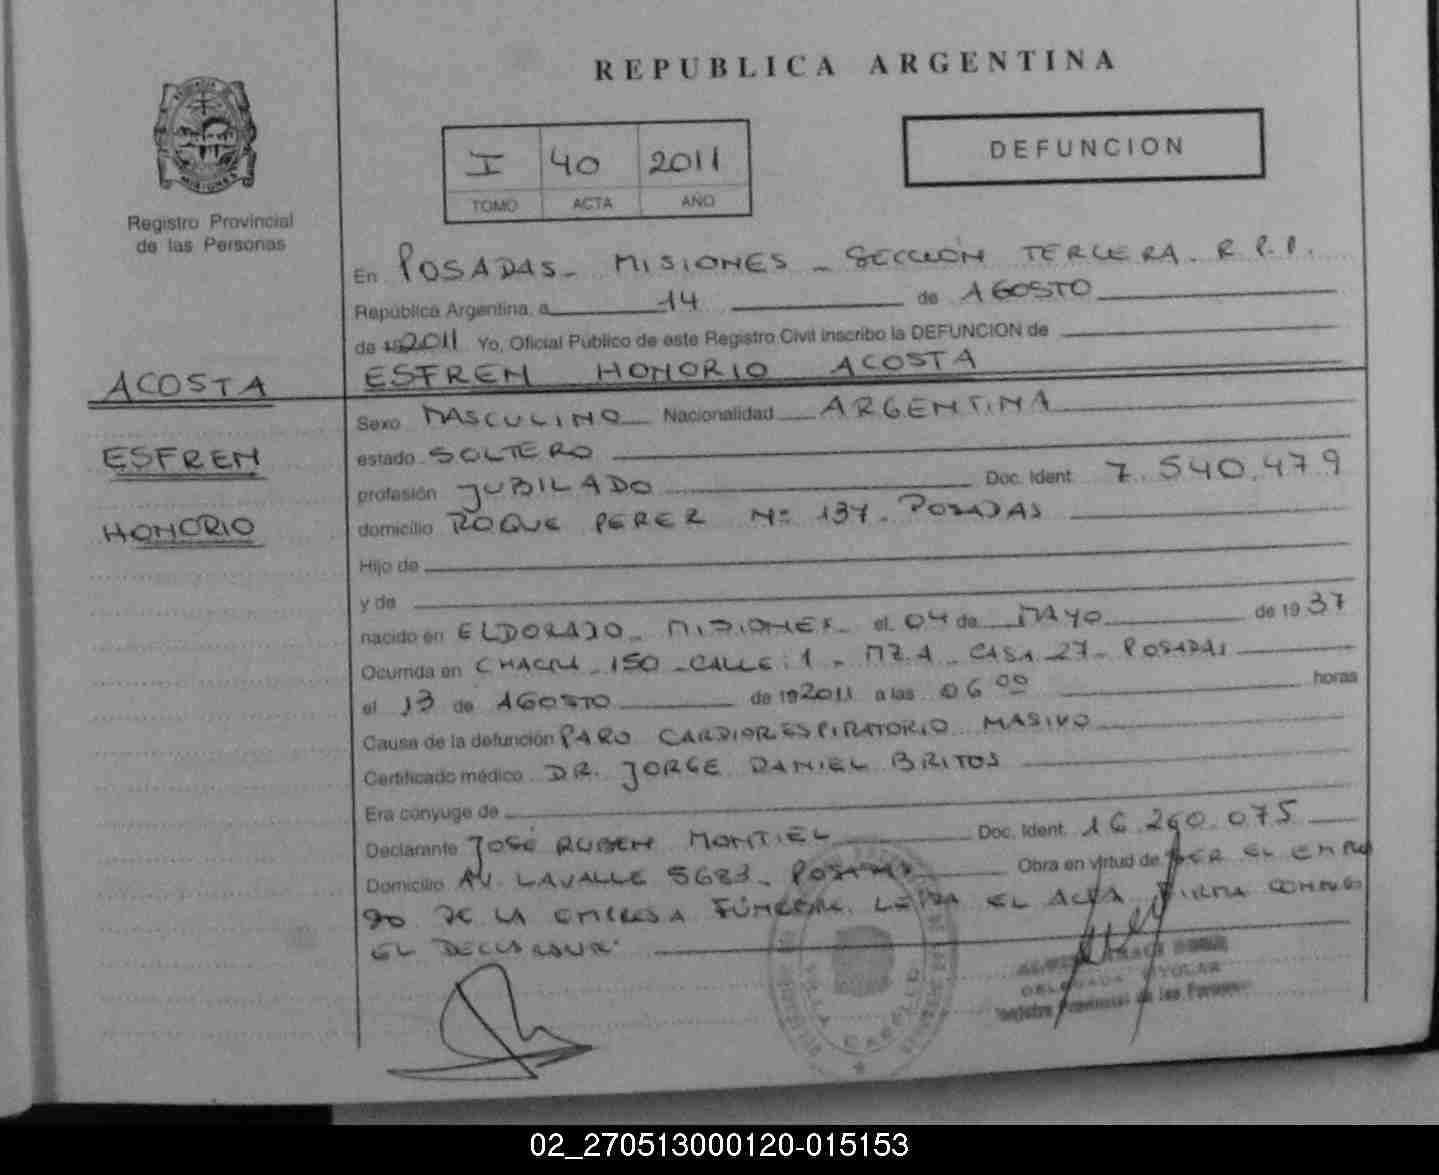 REPUBLICA ARGENTINA
Registro Provincial
de las Personas
I 40 2011
TOMO ACTA AÑO
DEFUNCION
En POSADAS - MISIONES - SECCIÓN TERCERA. R.P.P.
República Argentina, a 14 de AGOSTO
de 192011 Yo, Oficial Público de este Registro Civil inscribo la DEFUNCION de
ESFREN HONORIO ACOSTA
ACOSTA
ESFREN
HONORIO
Sexo MASCULINO Nacionalidad ARGENTINA
estado SOLTERO
profesión JUBILADO Doc. Ident. 7.540.479
domicilio ROQUE PEREZ Nº 137 - POSADAS
Hijo de
y de
nacido en ELDORADO - MISIONES - el 04 de MAYO de 19 37
Ocurrida en CHACRA 150 - CALLE: 1 - MZ.A - CASA 27 - POSADAS
el 13 de AGOSTO de 192011 a las 06 00 horas
Causa de la defunción PARO CARDIORESPIRATORIO MASIVO
Certificado médico DR. JORGE DANIEL BRITOS
Era cónyuge de
Declarante JOSÉ RUBEN MONTIEL Doc. Ident. 16.260.075
Domicilio AV. LAVALLE 5683 - POSADAS Obra en virtud de SER EL EMPLEA
DO DE LA EMPRESA FÚNEBRE. LEIDA EL ACTA FIRMA CONMIGO
EL DECLARANTE.
DELEGADA TITULAR
Registro Provincial de las Personas
VILLA CABELLO
02_270513000120-015153